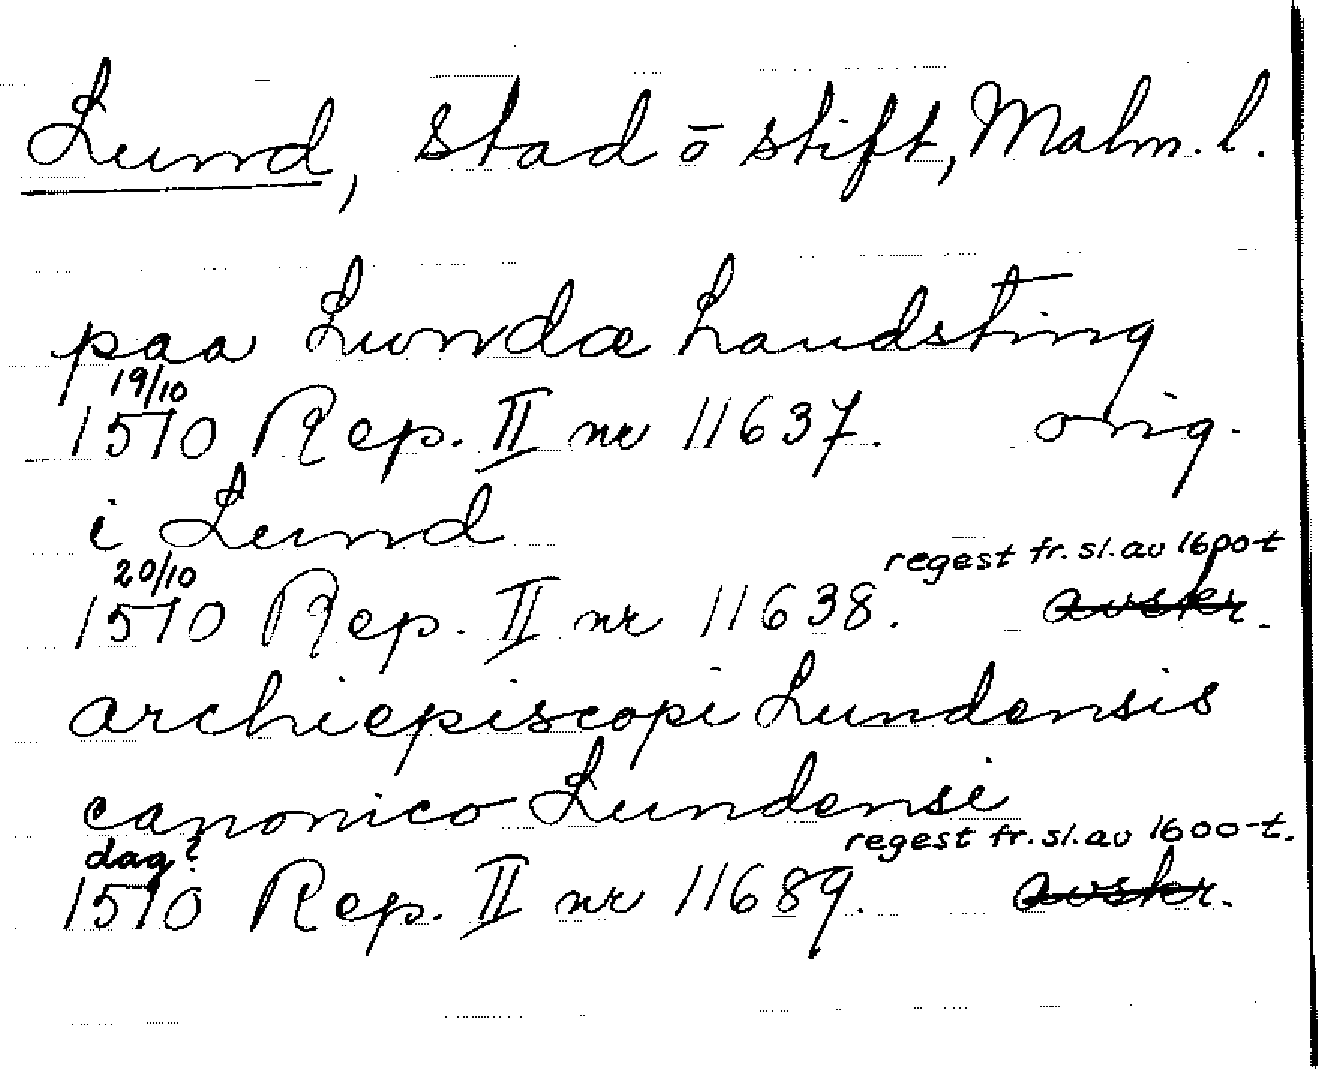 Lund, Stad ō stift, Malm. l.
paa Lundæ Landsting
19/10
1510 Rep. II nr 11637. orig.
i Lund
20/10 regest fr. sl. av 1600-t
1510 Rep. II nr 11638. avskr.
archiepiscopi Lundensis
canonico Lundensi
dag? regest fr. sl. av 1600-t.
1510 Rep. II nr 11689. avskr.